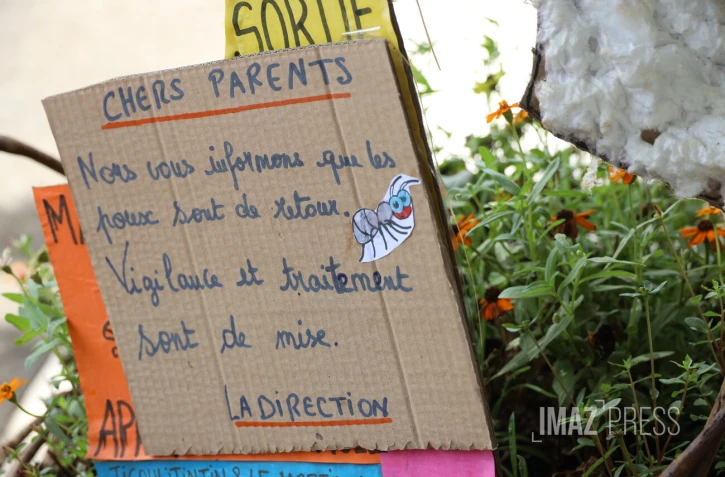 SORTIE
CHERS PARENTS
Nous vous informons que les
poux sont de retour.
Vigilance et traitement
sont de mise.
LA DIRECTION
MA
AP
IMAZ PRESS